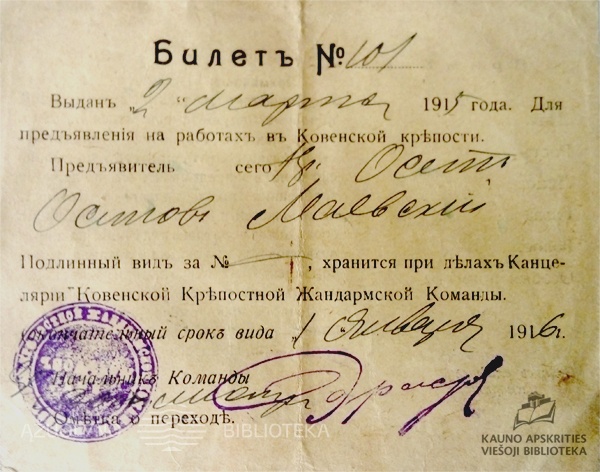 Билетъ № 101
Выданъ „2" марта 1915 года. Для
предъявленія на работахъ въ Ковенской крѣпости.
Предъявитель сего кр. Осетъ
Осипов Маевскій
Подлинный видъ за № , хранится при дѣлахъ Канце-
ляріи Ковенской Крѣпостной Жандармской Команды.
Окончательный срокъ вида „1 Января 1916 г.
Начальникъ Команды
Отмѣтка о переходѣ.
BIBLIOTEKA
KAUNO APSKRITIES
VIEŠOJI BIBLIOTEKA